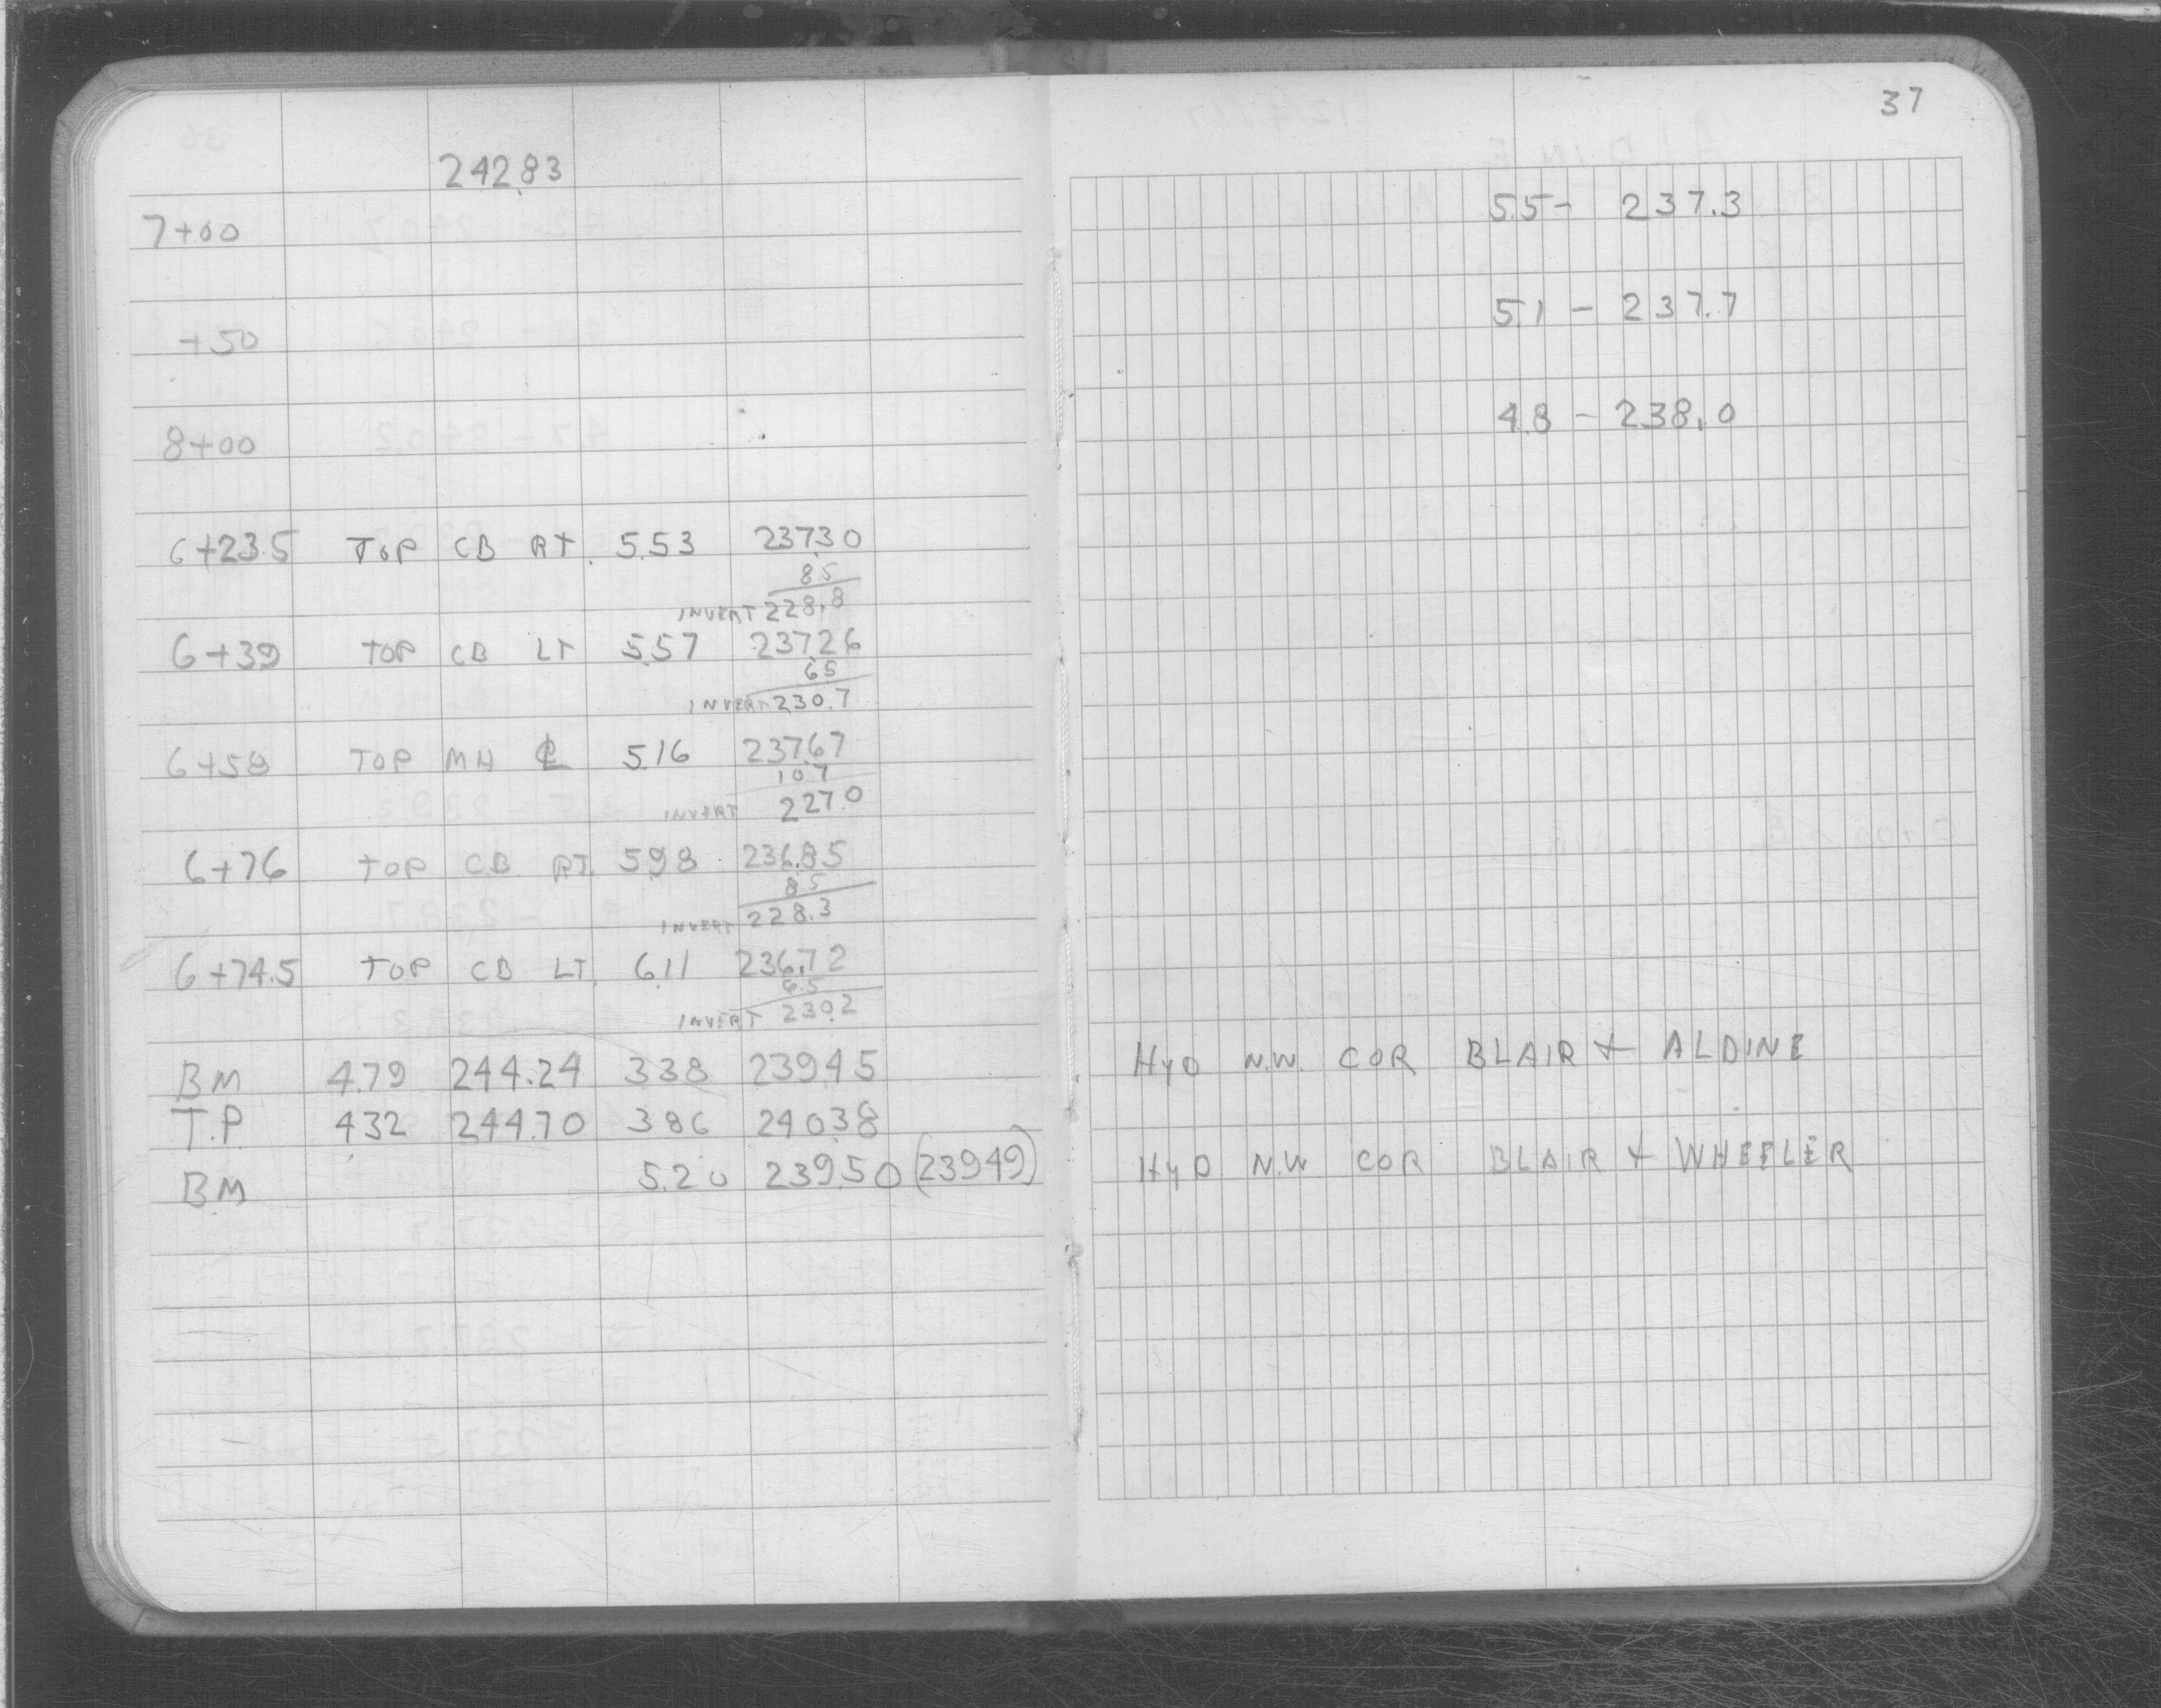 37
242.83
7+00 5.5- 237.3
+50 5.1 - 237.7
8+00 4.8 - 238.0
6+23.5 TOP CB RT. 5.53 237.30
8.5
INVERT 228.8
6+39 TOP CB LT 5.57 237.26
6.5
INVERT 230.7
6+58 TOP MH ℄ 5.16 237.67
10.7
INVERT 227.0
6+76 TOP CB RT. 5.98 236.85
8.5
INVERT 228.3
6+74.5 TOP CB LT. 6.11 236.72
6.5
INVERT 230.2
BM 4.79 244.24 3.38 239.45 HYD N.W. COR BLAIR & ALDINE
T.P. 4.32 244.70 3.86 240.38
BM 5.20 239.50 (239.49) HYD N.W COR BLAIR & WHEELER